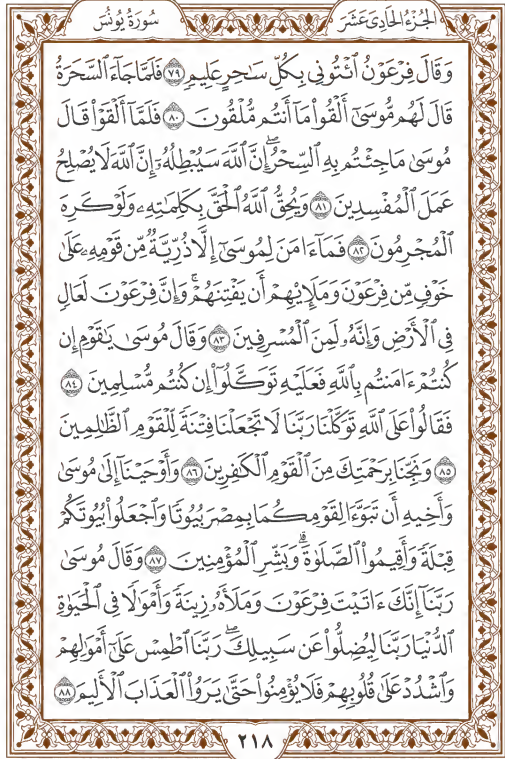 سُورَةُ يُونُسَ
الجُزْءُ الحَادِىَ عَشَرَ
وَقَالَ فِرْعَوْنُ ٱئْتُونِى بِكُلِّ سَـٰحِرٍ عَلِيمٍ ۝٧٩ فَلَمَّا جَآءَ ٱلسَّحَرَةُ
قَالَ لَهُم مُّوسَىٰٓ أَلْقُوا۟ مَآ أَنتُم مُّلْقُونَ ۝٨٠ فَلَمَّآ أَلْقَوْا۟ قَالَ
مُوسَىٰ مَا جِئْتُم بِهِ ٱلسِّحْرُ ۖ إِنَّ ٱللَّهَ سَيُبْطِلُهُۥٓ ۖ إِنَّ ٱللَّهَ لَا يُصْلِحُ
عَمَلَ ٱلْمُفْسِدِينَ ۝٨١ وَيُحِقُّ ٱللَّهُ ٱلْحَقَّ بِكَلِمَـٰتِهِۦ وَلَوْ كَرِهَ
ٱلْمُجْرِمُونَ ۝٨٢ فَمَآ ءَامَنَ لِمُوسَىٰٓ إِلَّا ذُرِّيَّةٌ مِّن قَوْمِهِۦ عَلَىٰ
خَوْفٍ مِّن فِرْعَوْنَ وَمَلَإِي۟هِمْ أَن يَفْتِنَهُمْ ۚ وَإِنَّ فِرْعَوْنَ لَعَالٍ
فِى ٱلْأَرْضِ وَإِنَّهُۥ لَمِنَ ٱلْمُسْرِفِينَ ۝٨٣ وَقَالَ مُوسَىٰ يَـٰقَوْمِ إِن
كُنتُمْ ءَامَنتُم بِٱللَّهِ فَعَلَيْهِ تَوَكَّلُوٓا۟ إِن كُنتُم مُّسْلِمِينَ ۝٨٤
فَقَالُوا۟ عَلَى ٱللَّهِ تَوَكَّلْنَا رَبَّنَا لَا تَجْعَلْنَا فِتْنَةً لِّلْقَوْمِ ٱلظَّـٰلِمِينَ
۝٨٥ وَنَجِّنَا بِرَحْمَتِكَ مِنَ ٱلْقَوْمِ ٱلْكَـٰفِرِينَ ۝٨٦ وَأَوْحَيْنَآ إِلَىٰ مُوسَىٰ
وَأَخِيهِ أَن تَبَوَّءَا لِقَوْمِكُمَا بِمِصْرَ بُيُوتًا وَٱجْعَلُوا۟ بُيُوتَكُمْ
قِبْلَةً وَأَقِيمُوا۟ ٱلصَّلَوٰةَ ۗ وَبَشِّرِ ٱلْمُؤْمِنِينَ ۝٨٧ وَقَالَ مُوسَىٰ
رَبَّنَآ إِنَّكَ ءَاتَيْتَ فِرْعَوْنَ وَمَلَأَهُۥ زِينَةً وَأَمْوَٰلًا فِى ٱلْحَيَوٰةِ
ٱلدُّنْيَا رَبَّنَا لِيُضِلُّوا۟ عَن سَبِيلِكَ ۖ رَبَّنَا ٱطْمِسْ عَلَىٰٓ أَمْوَٰلِهِمْ
وَٱشْدُدْ عَلَىٰ قُلُوبِهِمْ فَلَا يُؤْمِنُوا۟ حَتَّىٰ يَرَوُا۟ ٱلْعَذَابَ ٱلْأَلِيمَ ۝٨٨
٢١٨